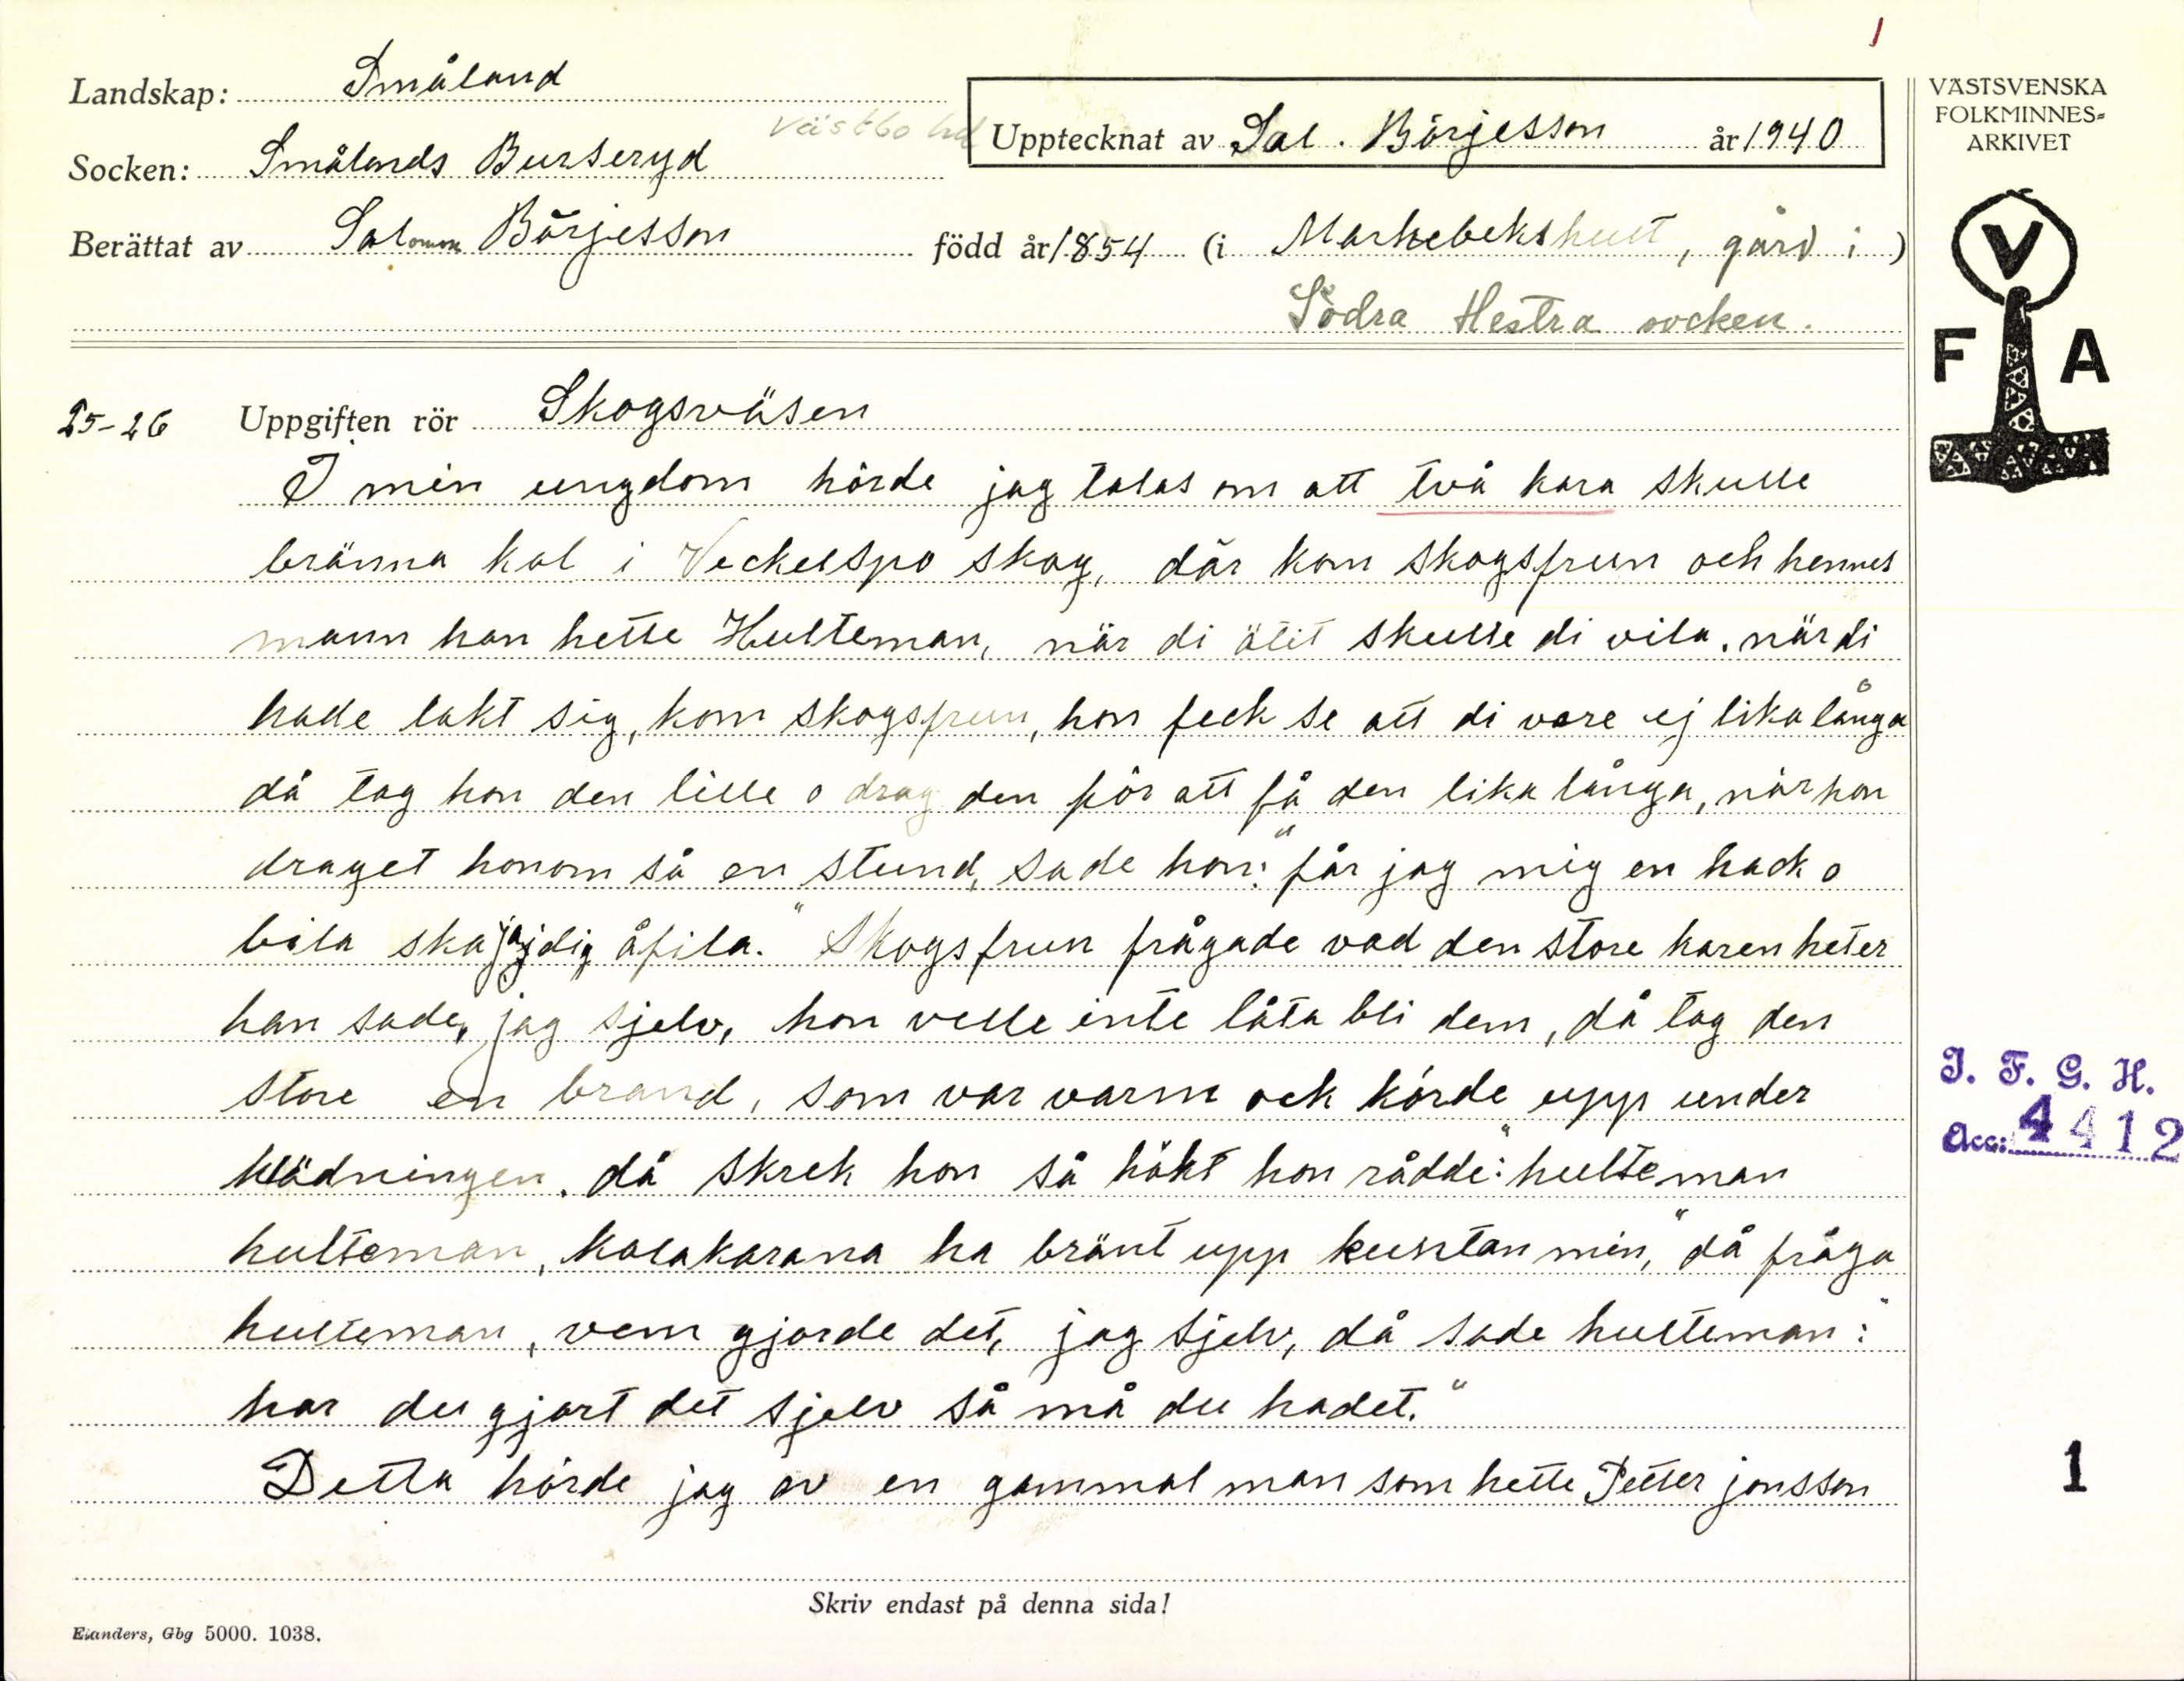 1
Landskap: Småland
Västbo hd
Upptecknat av Sal. Börjesson år 1940
Socken: Smålands Burseryd
Berättat av Salomon Börjesson född år 1854 (i Markebekshult, gård i)
Södra Hestra socken.
25-26 Uppgiften rör Skogsväsen
I min ungdom hörde jag talas om att två kara skulle
bränna kol i Veckelspo skog, där kom skogsfrun och hennes
mann han hette Hulteman, när di ätit skulle di vila. när di
hade lakt sig, kom skogsfrun, hon feck se att di vore ej lika långa
då tog hon den lille o drog den för att få den lika långa, när hon
draget honom så en stund, sade hon: "får jag mig en hack o
bila ska jag dig åfila." Skogsfrun frågade vad den store karen heter
han sade, jag sjelv, hon velle inte låta bli dem, då tog den
store en brand, som var varm ock körde upp under
klädningen. då skrek hon så hökt hon rådde: "hulteman
hulteman, kolakarana ha bränt upp kuntan min," då fråga
hulteman, vem gjorde det, jag sjelv, då sade hulteman: "
har du gjort det sjelv så må du hadet."
Detta hörde jag av en gammal man som hette Petter jonsson
Skriv endast på denna sida!
Elanders, Gbg 5000. 1038.
VÄSTSVENSKA
FOLKMINNES-
ARKIVET
V
F A
I. F. G. H.
Acc: 4412
1